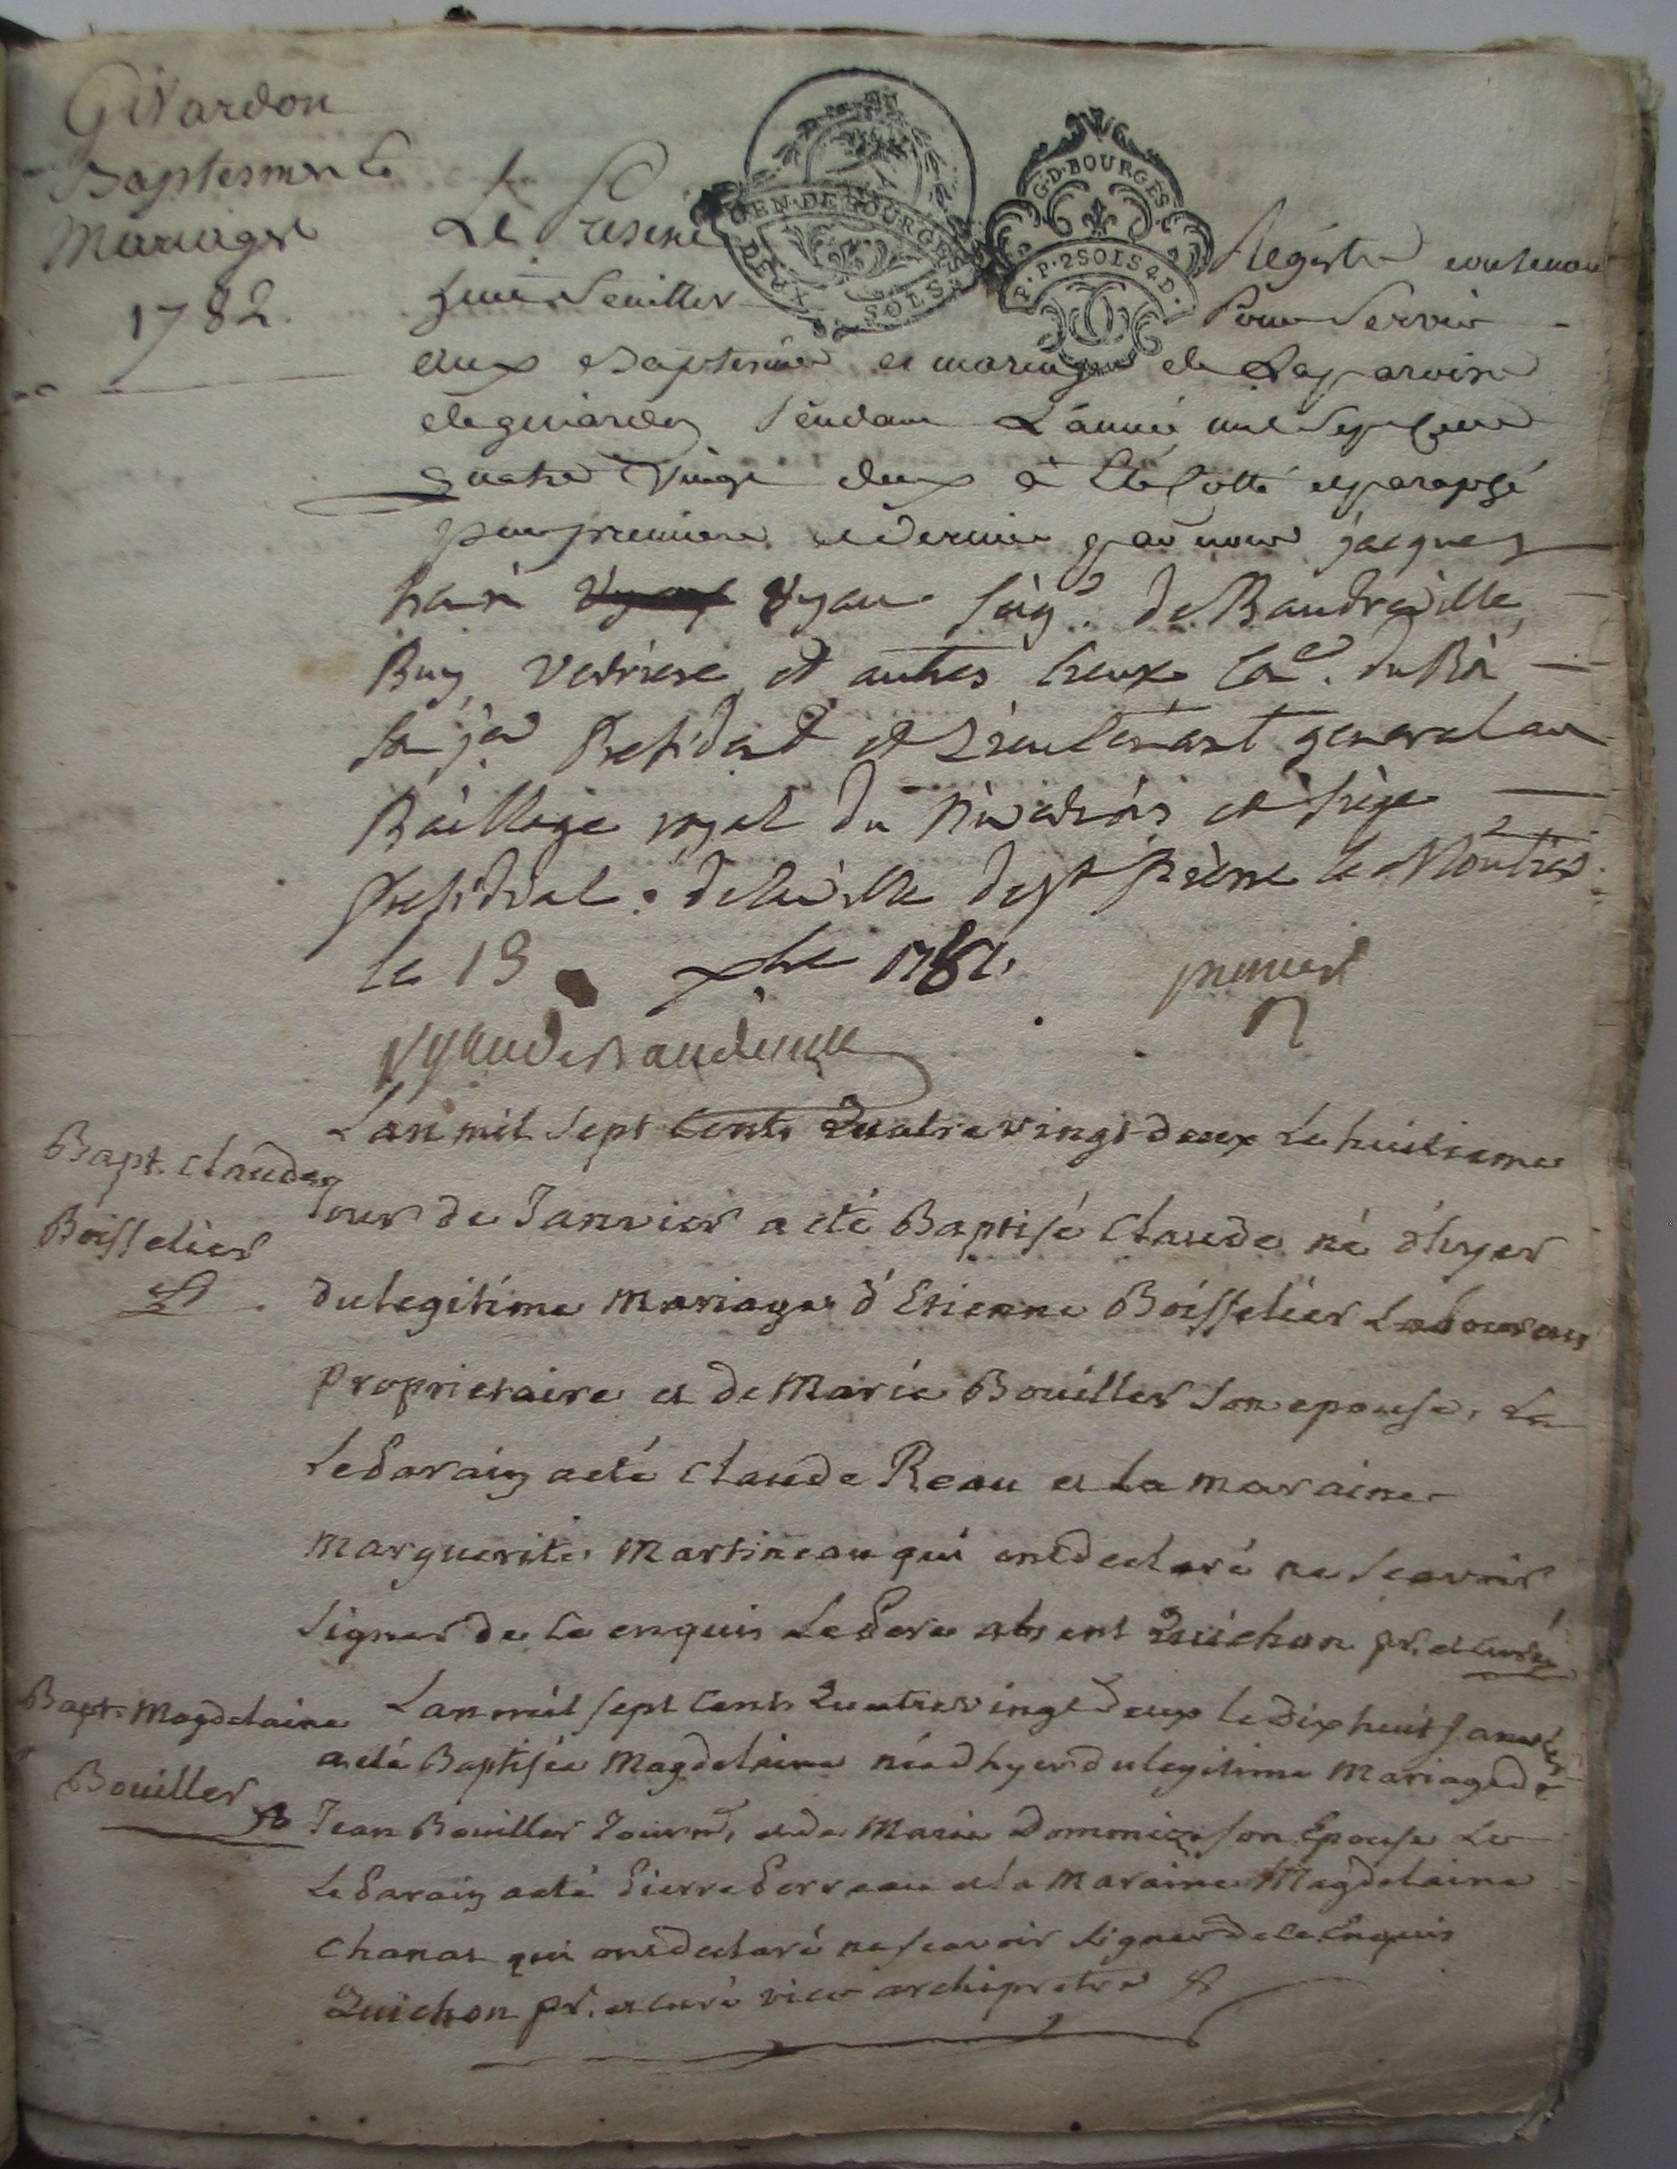 Givardon
Baptesme &
Mariages
1782.
GEN. DE BOURGES
DEUX SOLS
G. D. BOURGES
P. P. 2 SOLS 4 D.
Le Present Registre contenant
feuillets Pour Servir
aux Baptesmes et mariages de La paroisse
de givardon Pendant L'année mil Sept Cent
quatre Vingt deux a Eté Cotté et paraphé
par premier et dernier par nous jacques
Vyau seigr. de Baudreuille
et autres lieux Coer. du Roi
President et Lieutenant general au
Bailliage royal du Nivernois et siège
Presidial de la ville de St Pierre le Moutier
le 13 xbre 1781. premier
Vyau de Baudreuille
Bapt. Claude
Boisselier
L'an mil Sept Cents Quatre vingt deux Le huitieme
jour de Janvier a eté Baptisé Claude né d'hyer
du legitime Mariage d'Etienne Boisselier Laboureur
Proprietaire et de Marie Bouiller Son epouse, Le
Le Parain a eté Claude Reau et La maraine
Marguerite Martineau qui ont declaré ne Scavoir
Signer de Ce enquis Le Pere absent Quichon pr. et curé
Bapt. Magdelaine
Bouiller
L'an mil sept Cents Quatre vingt Deux le Dix huit Janvier
a eté Baptisée Magdelaine née d'hyer du legitime Mariage de
Jean Bouiller Journ. et de Marie Dominique son Epouse Le
Le Parain a eté Pierre Perreau et La Maraine Magdelaine
Chanat qui ont declaré ne scavoir Signer de ce Enquis
Quichon pr. et curé vice archipretre